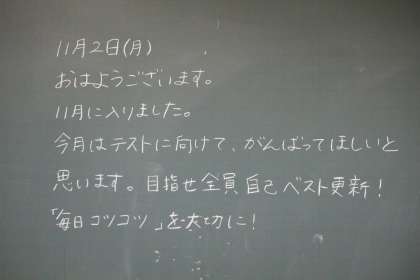 11月2日(月)
おはようございます。
11月に入りました。
今月はテストに向けて、がんばってほしいと
思います。目指せ全員自己ベスト更新!
「毎日コツコツ」を大切に!